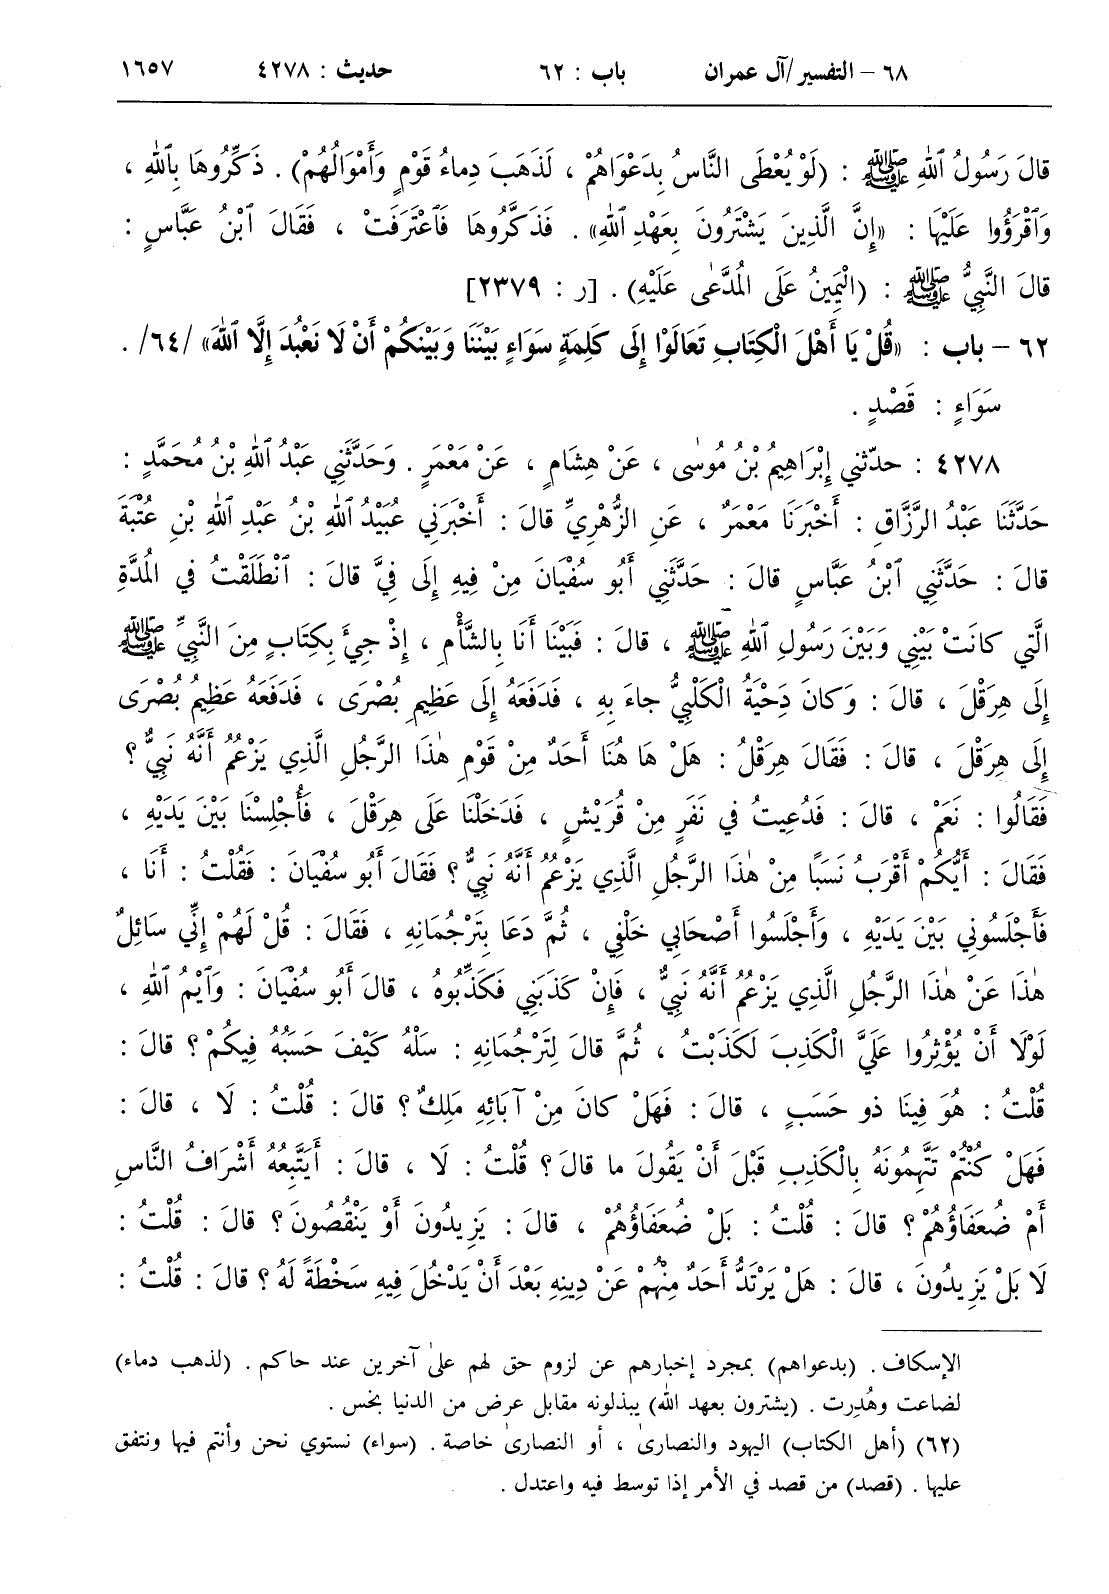 ٦٨ – التفسير/آل عمران باب : ٦٢ حديث : ٤٢٧٨ ١٦٥٧
قالَ رَسُولُ ٱللهِ ﷺ : (لَوْ يُعْطَى النَّاسُ بِدَعْوَاهُمْ ، لَذَهَبَ دِماءُ قَوْمٍ وَأَمْوَالُهُمْ) . ذَكِّرُوهَا بِٱللهِ ،
وَٱقْرَؤُوا عَلَيْهَا : «إِنَّ الَّذِينَ يَشْتَرُونَ بِعَهْدِ ٱللهِ» . فَذَكَّرُوهَا فَٱعْتَرَفَتْ ، فَقَالَ ٱبْنُ عَبَّاسٍ :
قالَ النَّبِيُّ ﷺ : (الْيَمِينُ عَلَى الْمُدَّعٰى عَلَيْهِ) . [ر : ٢٣٧٩]
٦٢ – باب : «قُلْ يَا أَهْلَ الْكِتَابِ تَعَالَوْا إِلَى كَلِمَةٍ سَوَاءٍ بَيْنَنَا وَبَيْنَكُمْ أَنْ لَا نَعْبُدَ إِلَّا ٱللهَ» /٦٤/ .
سَوَاءٍ : قَصْدٍ .
٤٢٧٨ : حدّثني إِبْرَاهِيمُ بْنُ مُوسٰى ، عَنْ هِشَامٍ ، عَنْ مَعْمَرٍ . وَحَدَّثَنِي عَبْدُ ٱللهِ بْنُ مُحَمَّدٍ :
حَدَّثَنَا عَبْدُ الرَّزَّاقِ : أَخْبَرَنَا مَعْمَرٌ ، عَنِ الزُّهْرِيِّ قالَ : أَخْبَرَنِي عُبَيْدُ ٱللهِ بْنُ عَبْدِ ٱللهِ بْنِ عُتْبَةَ
قالَ : حَدَّثَنِي ٱبْنُ عَبَّاسٍ قالَ : حَدَّثَنِي أَبُو سُفْيَانَ مِنْ فِيهِ إِلَى فِيَّ قالَ : ٱنْطَلَقْتُ فِي الْمُدَّةِ
الَّتِي كانَتْ بَيْنِي وَبَيْنَ رَسُولِ ٱللهِ ﷺ ، قالَ : فَبَيْنَا أَنَا بِالشَّأْمِ ، إِذْ جِيءَ بِكِتَابٍ مِنَ النَّبِيِّ ﷺ
إِلَى هِرَقْلَ ، قالَ : وَكانَ دَحْيَةُ الْكَلْبِيُّ جاءَ بِهِ ، فَدَفَعَهُ إِلَى عَظِيمِ بُصْرَى ، فَدَفَعَهُ عَظِيمُ بُصْرَى
إِلَى هِرَقْلَ ، قالَ : فَقَالَ هِرَقْلُ : هَلْ هَا هُنَا أَحَدٌ مِنْ قَوْمِ هٰذَا الرَّجُلِ الَّذِي يَزْعُمُ أَنَّهُ نَبِيٌّ ؟
فَقَالُوا : نَعَمْ ، قالَ : فَدُعِيتُ فِي نَفَرٍ مِنْ قُرَيْشٍ ، فَدَخَلْنَا عَلَى هِرَقْلَ ، فَأُجْلِسْنَا بَيْنَ يَدَيْهِ ،
فَقَالَ : أَيُّكُمْ أَقْرَبُ نَسَبًا مِنْ هٰذَا الرَّجُلِ الَّذِي يَزْعُمُ أَنَّهُ نَبِيٌّ ؟ فَقَالَ أَبُو سُفْيَانَ : فَقُلْتُ : أَنَا ،
فَأَجْلَسُونِي بَيْنَ يَدَيْهِ ، وَأَجْلَسُوا أَصْحَابِي خَلْفِي ، ثُمَّ دَعَا بِتَرْجُمَانِهِ ، فَقَالَ : قُلْ لَهُمْ إِنِّي سَائِلٌ
هٰذَا عَنْ هٰذَا الرَّجُلِ الَّذِي يَزْعُمُ أَنَّهُ نَبِيٌّ ، فَإِنْ كَذَبَنِي فَكَذِّبُوهُ ، قالَ أَبُو سُفْيَانَ : وَٱيْمُ ٱللهِ ،
لَوْلَا أَنْ يُؤْثِرُوا عَلَيَّ الْكَذِبَ لَكَذَبْتُ ، ثُمَّ قالَ لِتَرْجُمَانِهِ : سَلْهُ كَيْفَ حَسَبُهُ فِيكُمْ ؟ قالَ :
قُلْتُ : هُوَ فِينَا ذو حَسَبٍ ، قالَ : فَهَلْ كانَ مِنْ آبَائِهِ مَلِكٌ ؟ قالَ : قُلْتُ : لَا ، قالَ :
فَهَلْ كُنْتُمْ تَتَّهِمُونَهُ بِالْكَذِبِ قَبْلَ أَنْ يَقُولَ ما قالَ ؟ قُلْتُ : لَا ، قالَ : أَيَتَّبِعُهُ أَشْرَافُ النَّاسِ
أَمْ ضُعَفَاؤُهُمْ ؟ قالَ : قُلْتُ : بَلْ ضُعَفَاؤُهُمْ ، قالَ : يَزِيدُونَ أَوْ يَنْقُصُونَ ؟ قالَ : قُلْتُ :
لَا بَلْ يَزِيدُونَ ، قالَ : هَلْ يَرْتَدُّ أَحَدٌ مِنْهُمْ عَنْ دِينِهِ بَعْدَ أَنْ يَدْخُلَ فِيهِ سَخْطَةً لَهُ ؟ قالَ : قُلْتُ :
الإسكاف . (بدعواهم) بمجرد إخبارهم عن لزوم حق لهم علىٰ آخرين عند حاكم . (لذهب دماء)
لضاعت وهُدِرت . (يشترون بعهد الله) يبذلونه مقابل عرض من الدنيا بخس .
(٦٢) (أهل الكتاب) اليهود والنصارىٰ ، أو النصارىٰ خاصة . (سواء) نستوي نحن وأنتم فيها ونتفق
عليها . (قصد) من قصد في الأمر إذا توسط فيه واعتدل .